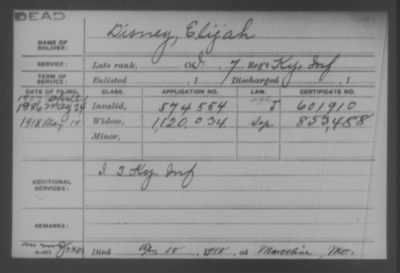 DEAD
NAME OF SOLDIER: Disney, Elijah
SERVICE: Late rank, Co. 7 Reg't Ky. Inf
TERM OF SERVICE: Enlisted , 1 Discharged , 1
DATE OF FILING. CLASS. APPLICATION NO. LAW. CERTIFICATE NO.
1886 May 24 Invalid, 574584 601910
1918 May 10 Widow, 1,120,034 Sep. 853,458
Minor,
ADDITIONAL SERVICES: I 3 Ky. Inf
REMARKS:
Died 10, 1918, at Marceline, Mo.